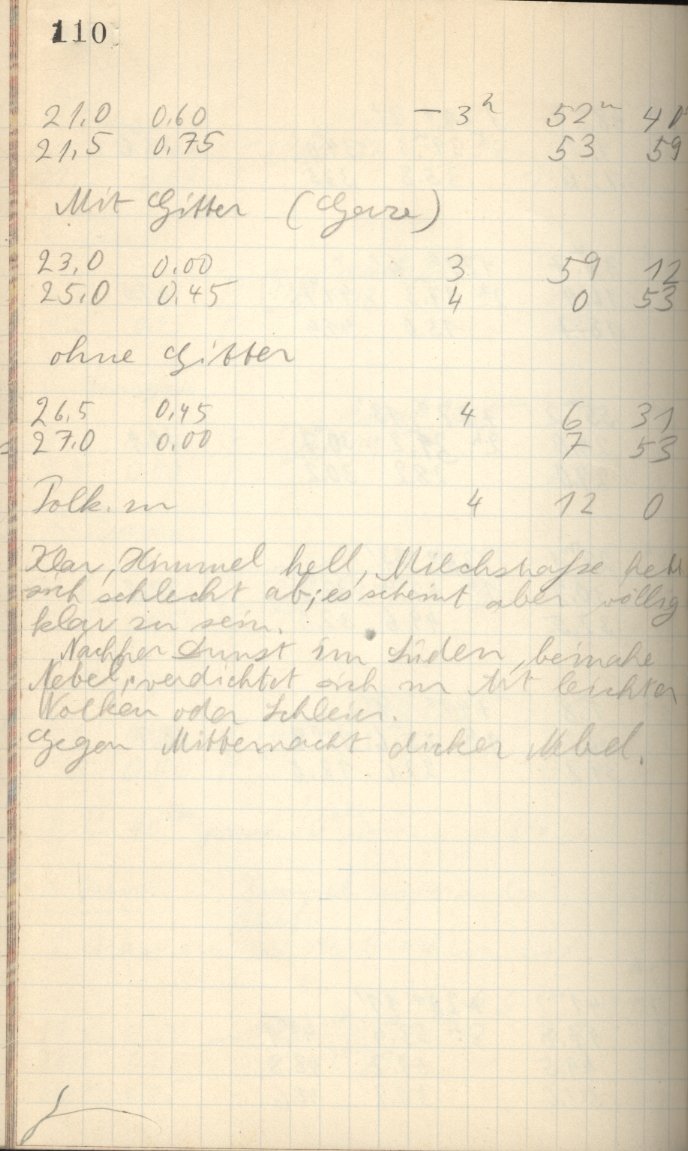 110
21,0 0,60 – 3h 52m 41
21,5 0,75 53 59
Mit Gitter (Gaze)
23,0 0,00 3 59 12
25,0 0,45 4 0 53
ohne Gitter
26,5 0,45 4 6 31
27,0 0,00 7 53
4 12 0
Klar, Himmel hell, Milchstraße hebt
sich schlecht ab; es scheint aber völlig
klar zu sein.
Nachher Dunst im Süden, beinahe
Nebel; verdichtet sich zu Art leichter
Wolken oder Schleier.
Gegen Mitternacht dicker Nebel.